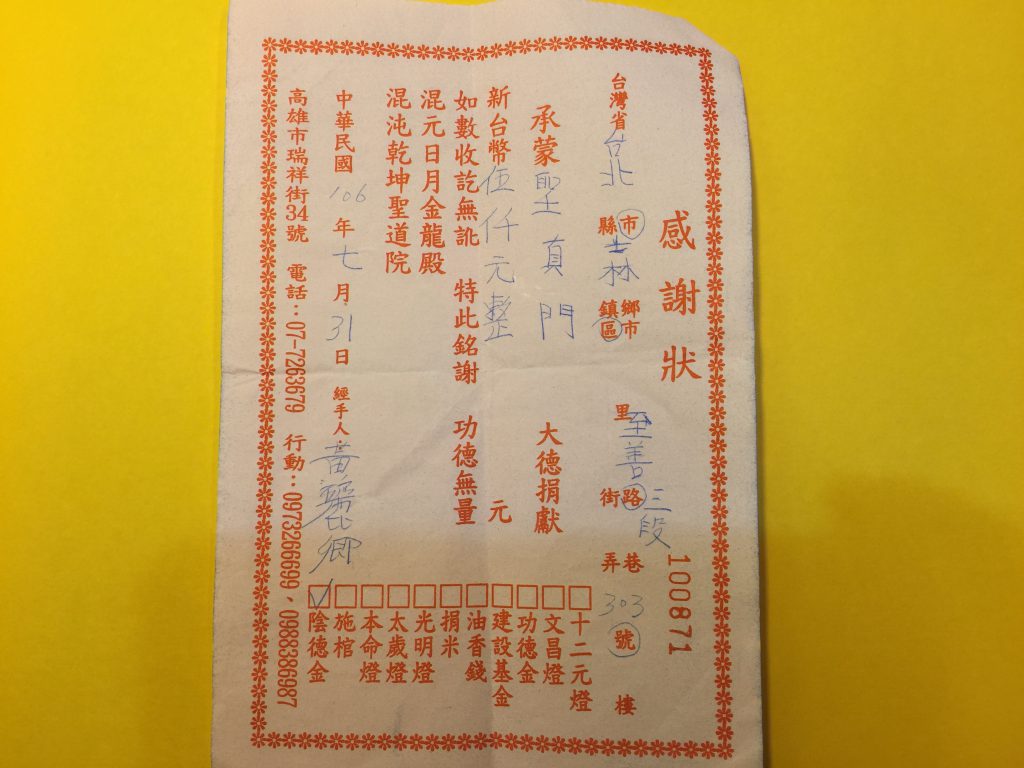 感謝狀
100871
台灣省台北縣市士林鄉鎮市區 里至善路街三段 巷弄303號 樓
承蒙聖真門 大德捐獻
新台幣伍仟元整 元
如數收訖無訛 特此銘謝 功德無量
混元日月金龍殿
混沌乾坤聖道院
中華民國106年七月31日 經手人:黃麗卿
高雄市瑞祥街34號 電話:07-7263679 行動:0973266699、0988386987
□十二元燈
□文昌燈
□功德金
□建設基金
□油香錢
□捐米
□光明燈
□太歲燈
□本命燈
□施棺
☑陰德金